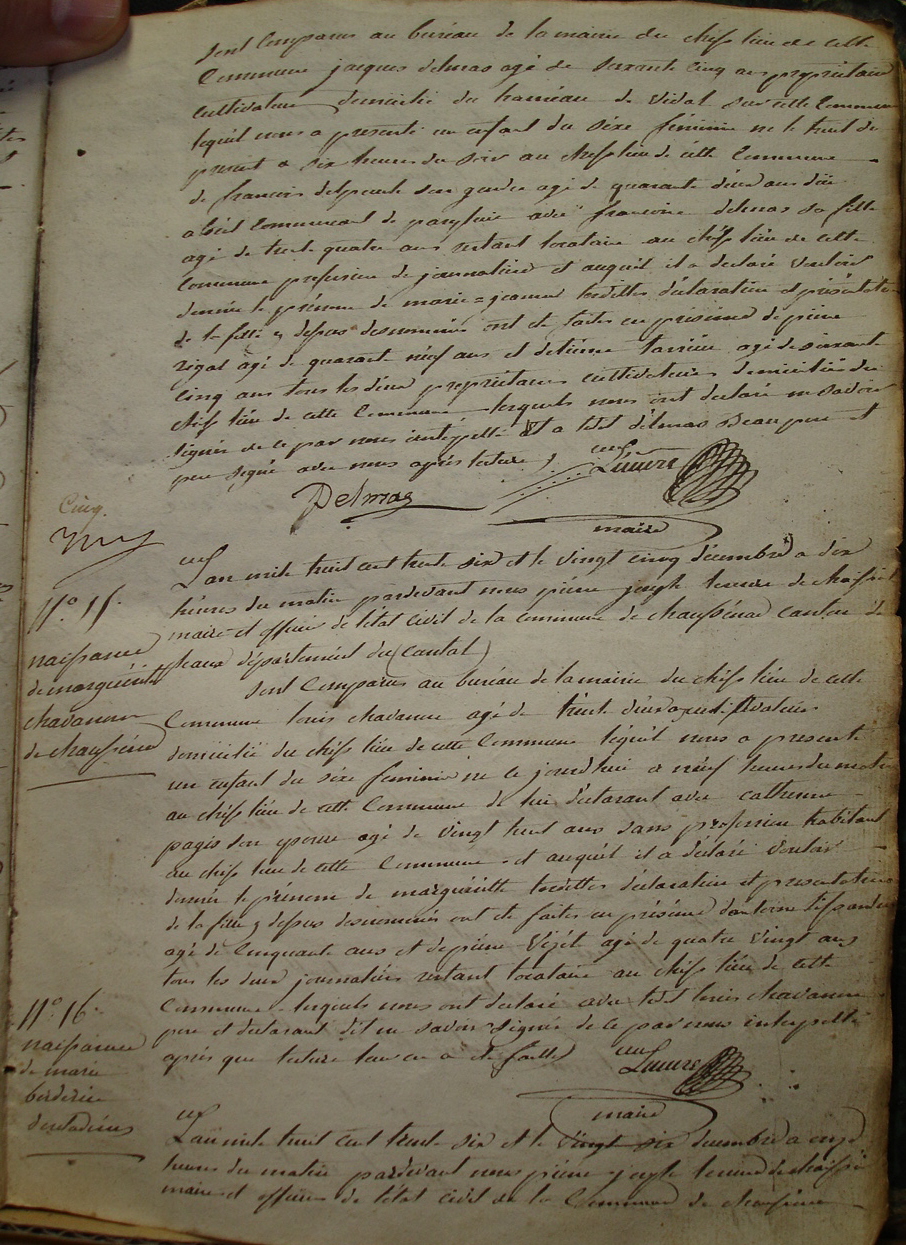 sont Comparus au bureau de la mairie du cheff lieu de cette
Commune jacques delmas agé de soixante cinq ans propriétaire
cultivateur domicilié du hameau de vidal sur cette Commune
lequel nous a présenté un enfant du séxe féminin né le
présent a six heures du soir au cheff lieu de cette Commune
de francois delpeuch son gendre agé de quarante deux ans
avec francoise delmas sa fille
agé de trente quatre ans restant locataire au cheff lieu de cette
Commune profession de journalière et auquel il a déclaré vouloir
donner le prénom de marie=jeanne lesdittes déclaration et présentation
de la fille y dessus desnommée ont été faites en présence de pierre
rigal agé de quarante neuf ans et détienne agé de soixante
cinq ans tous les deux propriétaires cultivateurs domiciliés du
cheff lieu de cette Commune lesquels nous ont déclaré ne savoir
signer de ce par nous interpellé et a ledit delmas Beau pere et
pere signé avec nous après lecture
Delmas
maire
Cinq.
N° 15.
naissance
de marguéritte
chavanon
de chaussénac
L'an mile huit cent trente six et le vingt cinq décembre a dix
heures du matin pardevant nous pierre joseph
maire et officier de létat civil de la commune de chaussénac canton de
pleaux département du (Cantal)
sont Comparus au bureau de la mairie du cheff lieu de cette
Commune louis chavanon agé de trente deux ans cultivateur
domicilié du cheff lieu de cette Commune lequel nous a présenté
un enfant du séxe féminin né ce jourdhui a neuf heures du matin
au cheff lieu de cette Commune de lui déclarant avec catherine
pagès son épouse agé de vingt huit ans sans profession habitant
au cheff lieu de cette Commune et auquel il a déclaré vouloir
donner le prénom de marguéritte lesdittes déclaration et présentation
de la fille y dessus desnommée ont été faites en présence dantoine
agé de Cinquante ans et de pierre vizét agé de quatre vingt ans
tous les deux journaliers restant locataire au cheff lieu de cette
Commune lesquels nous ont déclaré avec ledit louis chavanon
pere et déclarant dit ne savoir signer de ce par nous interpellé
après que lecture leur en a été faitte
maire
N° 16.
naissance
de marie
L'an mile huit cent trente six et le vingt six décembre a onze
heures du matin pardevant nous pierre joseph
maire et officier de létat civil de la Commune de chaussénac